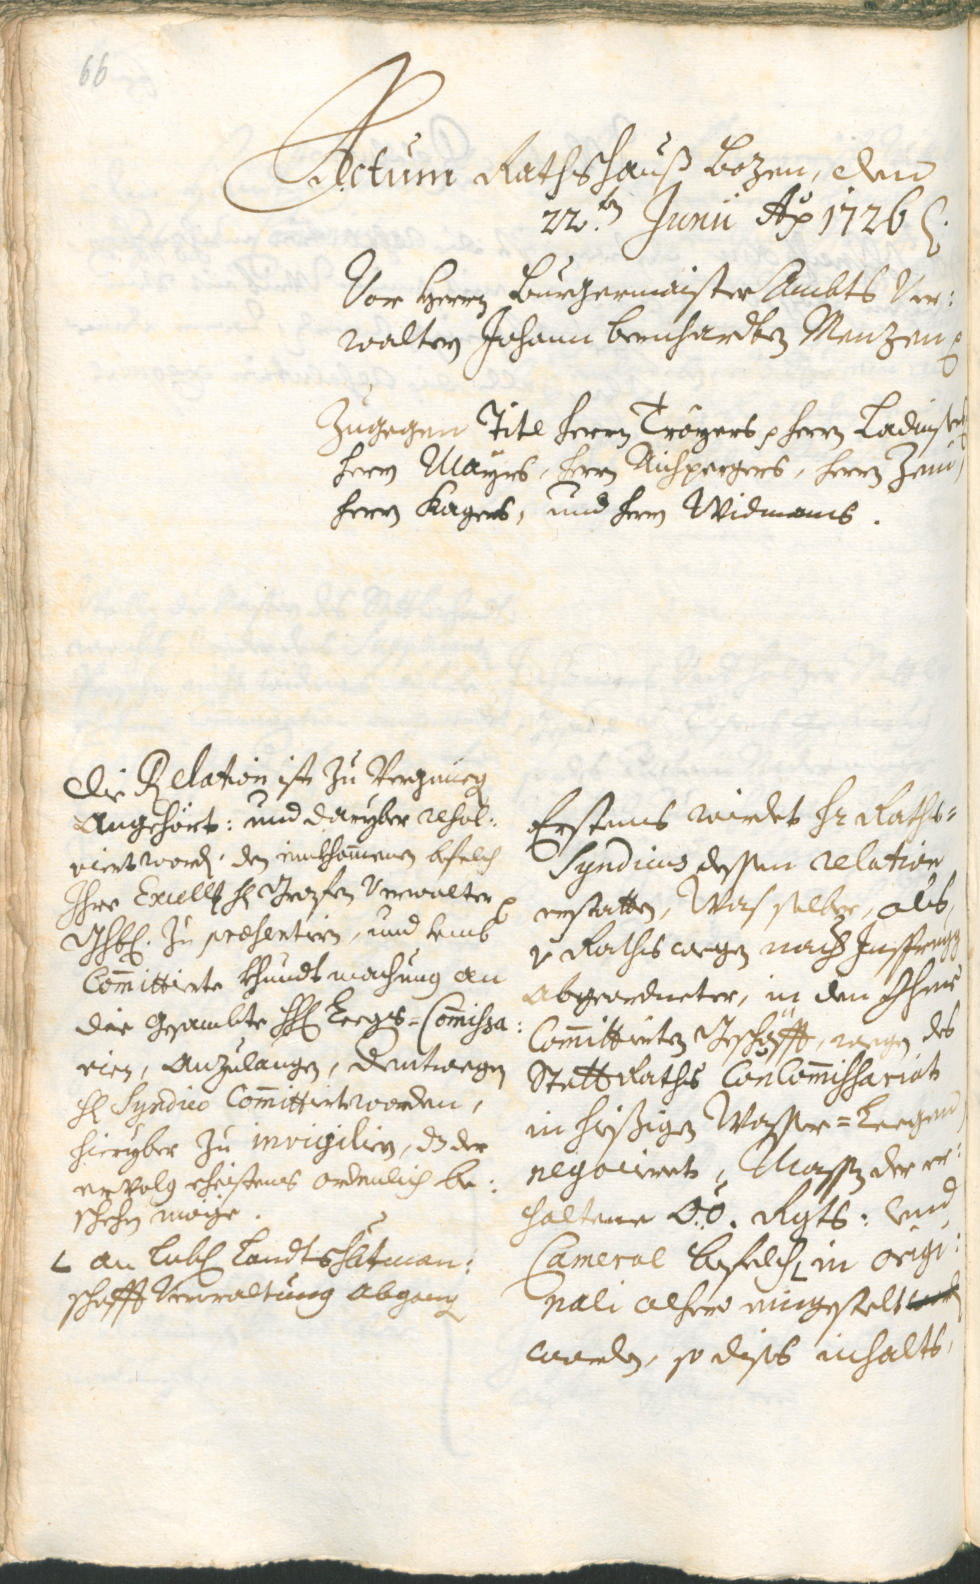 66
Actum Rathshauß Bozen, den
22.ten Junii Ao 1726
Vor Herrn Burgermaister Ambts Ver:
waltern Johann Bernhardten Menzen p
Zugegen Titl herrn Tröyers p herrn Ladinser
herrn Mayrs, herrn Aichpergers, herrn Zenu
herrn Kagers, und herrn Widmans.
Die Relation ist zu Vergnüeg
Angehört: und daryber resol:
viert worden, den einkhommenen befelch
Ihro Excellz H Grafen Verwalter p
zu præsentiren, und umb
Committirte khundtmachung an
die gesambte HH Leegs=Commissa:
rien, Anzulangen, dentwegen
H Syndico Committiert worden,
hieryber zu invigilien, dz der
ervolg ehistens ordenlich be:
schehen möge.
L an Lobl Landtshaubtman:
schafft Verwaltung abgang
Erstens würdet hr Raths=
Syndicus dessen relation
erstatten, Was selber, als,
v Raths wegen nacher Insprugg
Abgeordneter, in den Ihme
Committierten Geschäfft, wegen des
Statt Raths ConCommissariat
in hießigen Wasser=Leegen
negociert, Massen der er:
haltene O:Ö. Rgts: und
Cameral befelch L in origi:
nali alhero eingestelt
worden, so dises inhalts,